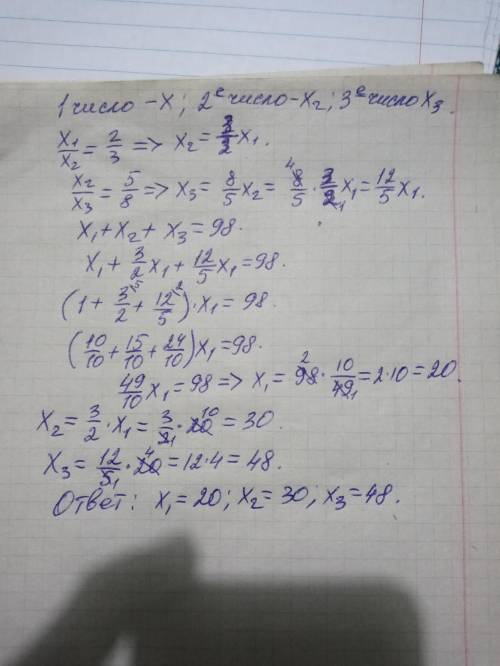 1 число – X; 2е число – X₂; 3е число X₃.
X₁/X₂ = 2/3 => X₂ = 3/2 X₁.
X₂/X₃ = 5/8 => X₃ = 8/5 X₂ = 8⁴/5 · 3/2₁ X₁ = 12/5 X₁.
X₁ + X₂ + X₃ = 98.
X₁ + 3/2 X₁ + 12/5 X₁ = 98.
(1 + 3⁵/2 + 12²/5) · X₁ = 98.
(10/10 + 15/10 + 24/10) X₁ = 98.
49/10 X₁ = 98 => X₁ = 98² · 10/49₁ = 2·10 = 20.
X₂ = 3/2 · X₁ = 3/2₁ · 20¹⁰ = 30.
X₃ = 12/5₁ · 20⁴ = 12·4 = 48.
Ответ: X₁ = 20; X₂ = 30; X₃ = 48.